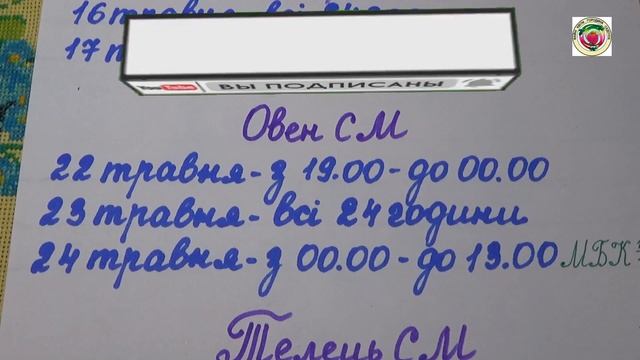 16 травня - всі 24
17
YouTube ВЫ ПОДПИСАНЫ
Овен СМ
22 травня - з 19.00 - до 00.00
23 травня - всі 24 години
24 травня - з 00.00 - до 13.00 МБК
Телець СМ